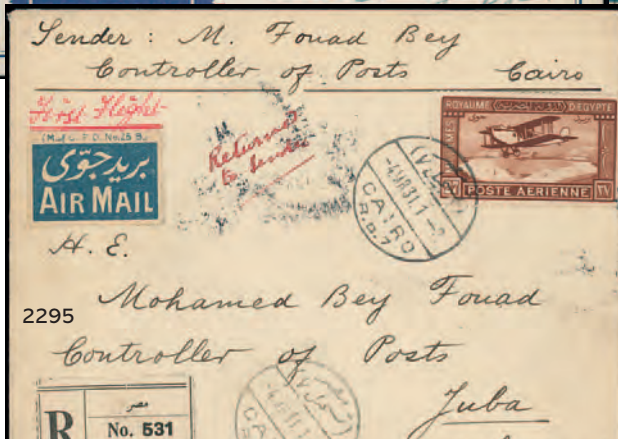 Sender : M. Fouad Bey
Controller of Posts Cairo
First Flight
بريد جوى
AIR MAIL
Returned
to sender
ROYAUME D'EGYPTE
POSTE AERIENNE
٢٧
CAIRO
R.D.7
H. E.
Mohamed Bey Fouad
2295
Controller of Posts
Juba
مصر
R
No. 531